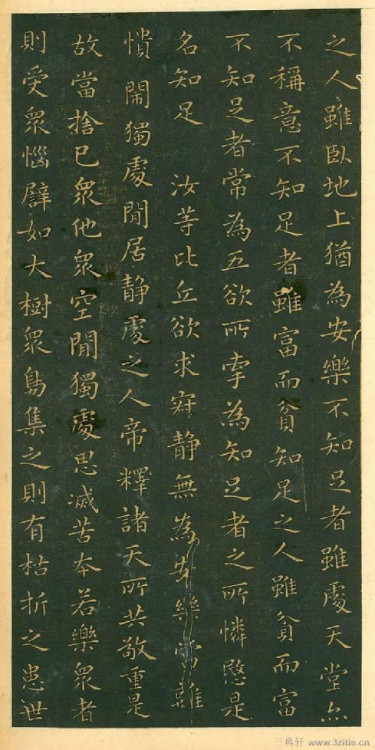 之人雖臥地上猶為安樂不知足者雖處天堂亦
不稱意不知足者雖富而貧知足之人雖貧而富
不知足者常為五欲所牽為知足者之所憐愍是
名知足　汝等比丘欲求寂静無為安樂當離
憒閙獨處閒居静處之人帝釋諸天所共敬重是
故當捨己衆他衆空閒獨處思滅苦本若樂衆者
則受衆惱譬如大樹衆鳥集之則有枯折之患世
www.3zitie.cn